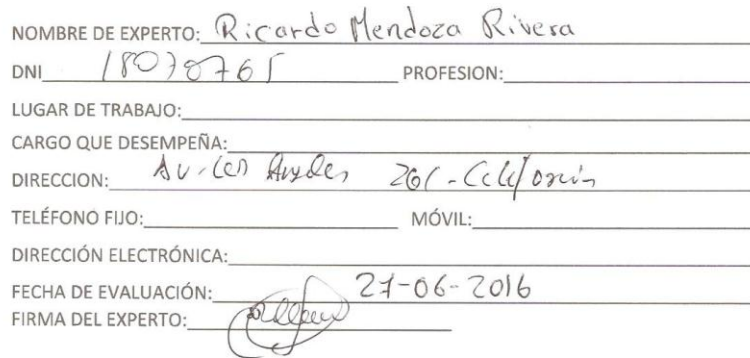 NOMBRE DE EXPERTO: Ricardo Mendoza Rivera
DNI PROFESION:
LUGAR DE TRABAJO:
CARGO QUE DESEMPEÑA:
DIRECCION: Av. Los Angeles - California
TELÉFONO FIJO: MÓVIL:
DIRECCIÓN ELECTRÓNICA:
FECHA DE EVALUACIÓN: 27-06-2016
FIRMA DEL EXPERTO: